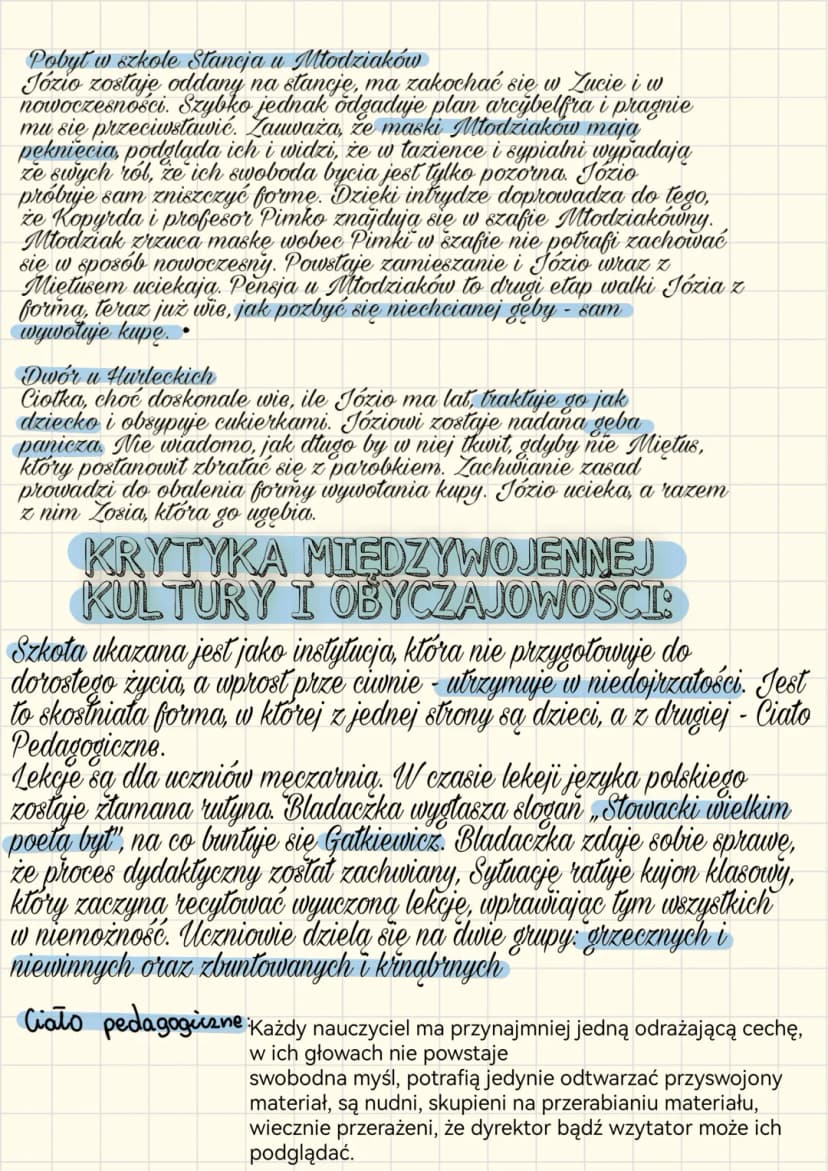 Pobyt w szkole Stancja u Młodziaków
Józio zostaje oddany na stancję, ma zakochać się w Zucie i w
nowoczesności. Szybko jednak odgaduje plan arcybelfra i pragnie
mu się przeciwstawić. Zauważa, że maski Młodziaków mają
pęknięcia, podgląda ich i widzi, że w łazience i sypialni wypadają
ze swych ról, że ich swoboda bycia jest tylko pozorna. Józio
próbuje sam zniszczyć formę. Dzięki intrydze doprowadza do tego,
że Kopyrda i profesor Pimko znajdują się w szafie Młodziakówny.
Młodziak zrzuca maskę wobec Pimki w szafie nie potrafi zachować
się w sposób nowoczesny. Powstaje zamieszanie i Józio wraz z
Miętusem uciekają. Pensja u Młodziaków to drugi etap walki Józia z
formą, teraz już wie, jak pozbyć się niechcianej gęby - sam
wywołuje kupę. •
Dwór u Hurleckich
Ciotka, choć doskonale wie, ile Józio ma lat, traktuje go jak
dziecko i obsypuje cukierkami. Józiowi zostaje nadana gęba
panicza. Nie wiadomo, jak długo by w niej tkwił, gdyby nie Miętus,
który postanowił zbratać się z parobkiem. Zachwianie zasad
prowadzi do obalenia formy wywołania kupy. Józio ucieka, a razem
z nim Zosia, która go ugębia.
KRYTYKA MIĘDZYWOJENNEJ
KULTURY I OBYCZAJOWOŚCI:
Szkoła ukazana jest jako instytucja, która nie przygotowuje do
dorosłego życia, a wprost prze ciwnie - utrzymuje w niedojrzałości. Jest
to skostniała forma, w której z jednej strony są dzieci, a z drugiej - Ciało
Pedagogiczne.
Lekcje są dla uczniów męczarnią. W czasie lekeji języka polskiego
zostaje złamana rutyna. Bladaczka wygłasza slogan „Słowacki wielkim
poetą był", na co buntuje się Gałkiewicz. Bladaczka zdaje sobie sprawę,
że proces dydaktyczny został zachwiany, Sytuację ratuje kujon klasowy,
który zaczyna recytować wyuczoną lekcję, wprawiając tym wszystkich
w niemożność. Uczniowie dzielą się na dwie grupy: grzecznych i
niewinnych oraz zbuntowanych i krnąbrnych
Ciało pedagogiczne:
Każdy nauczyciel ma przynajmniej jedną odrażającą cechę,
w ich głowach nie powstaje
swobodna myśl, potrafią jedynie odtwarzać przyswojony
materiał, są nudni, skupieni na przerabianiu materiału,
wiecznie przerażeni, że dyrektor bądź wzytator może ich
podglądać.